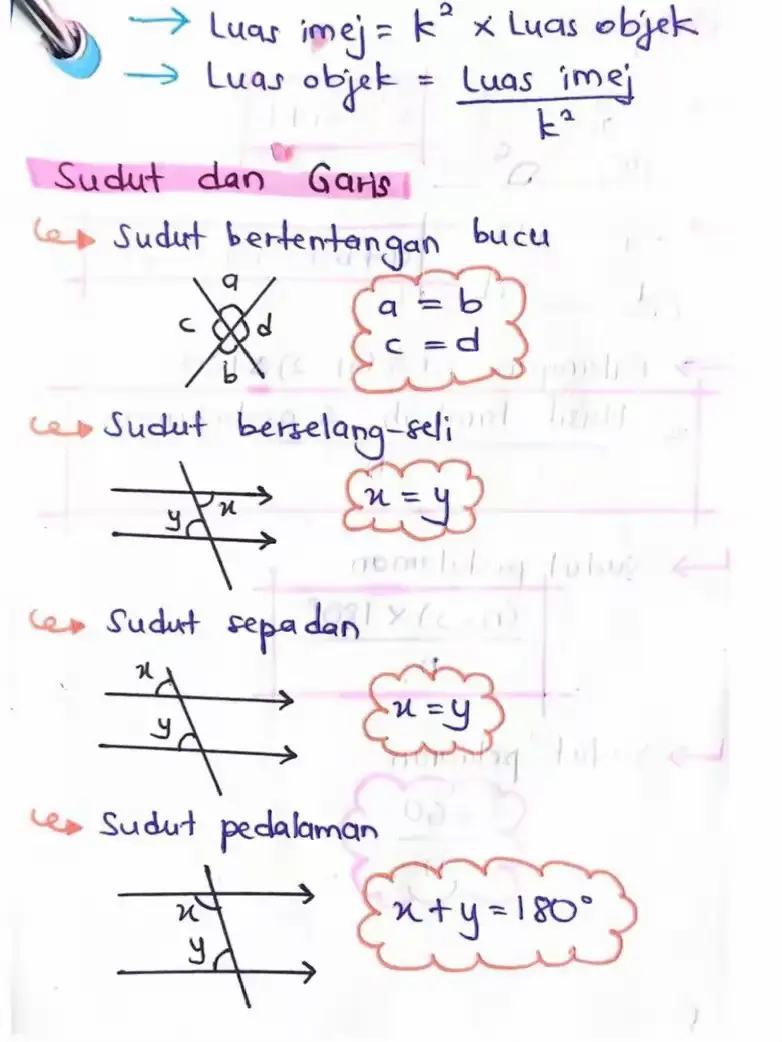 → Luas imej = k² × Luas objek
→ Luas objek = Luas imej
k²
Sudut dan Garis
Sudut bertentangan bucu
a
c d
b
a = b
c = d
Sudut berselang-seli
x
y
x = y
Sudut sepadan
x
y
x = y
Sudut pedalaman
x
y
x + y = 180°